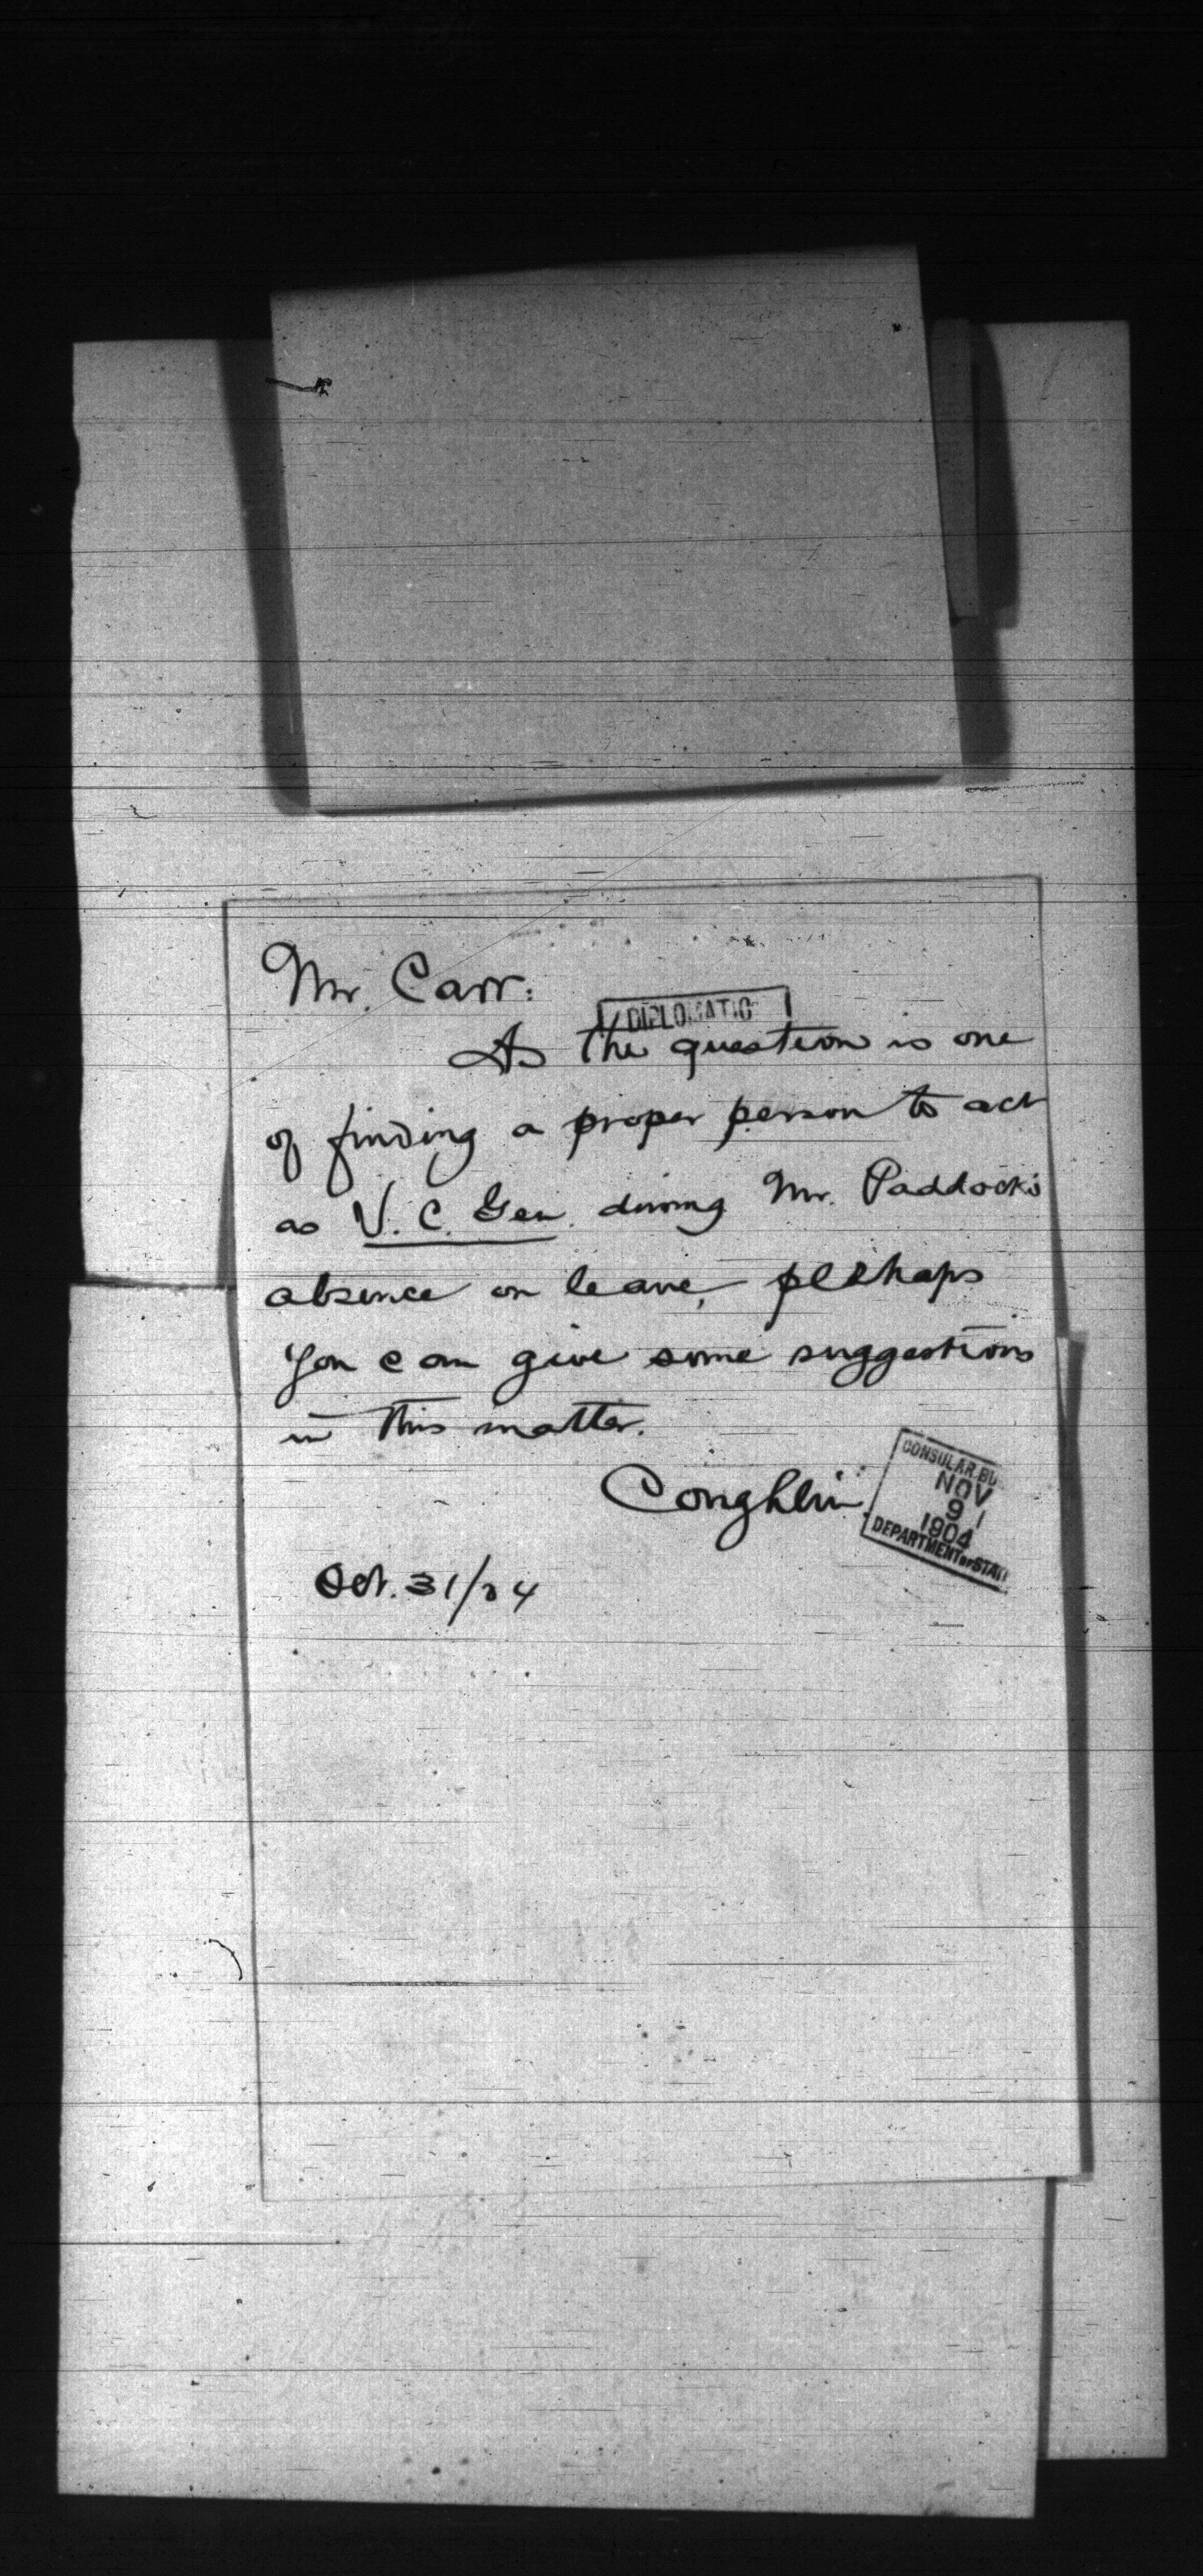 Mr. Carr:
DIPLOMATIC
As the question is one
of finding a proper person to act
as V. C. Gen. during Mr. Paddock's
absence on leave, perhaps
you can give some suggestions
in this matter.
Coughlin.
CONSULAR BU
NOV
9
1904
DEPARTMENT OF STATE
Oct. 31/04